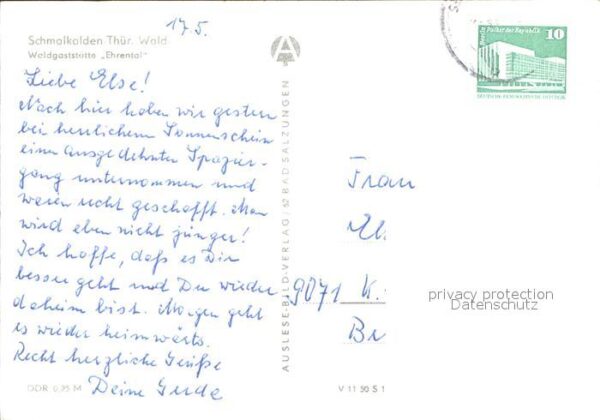 17.5.
Schmalkalden Thür. Wald
Waldgaststätte „Ehrental"
Liebe Else!
Nach hier haben wir gestern
bei herrlichem Sonnenschein
einen ausgedehnten Spazier-
gang unternommen und
waren recht geschafft. Man
wird eben nicht jünger!
Ich hoffe, daß es Dir
besser geht und Du wieder
daheim bist. Morgen geht
es wieder heimwärts.
Recht herzliche Grüße
Deine Gerda
DDR 0,25 M
AUSLESE-BILD-VERLAG / 62 BAD SALZUNGEN
A
Berlin, Palast der Republik
10
DEUTSCHE DEMOKRATISCHE REPUBLIK
Frau
9071 K.
privacy protection
Datenschutz
V 11 50 S 1